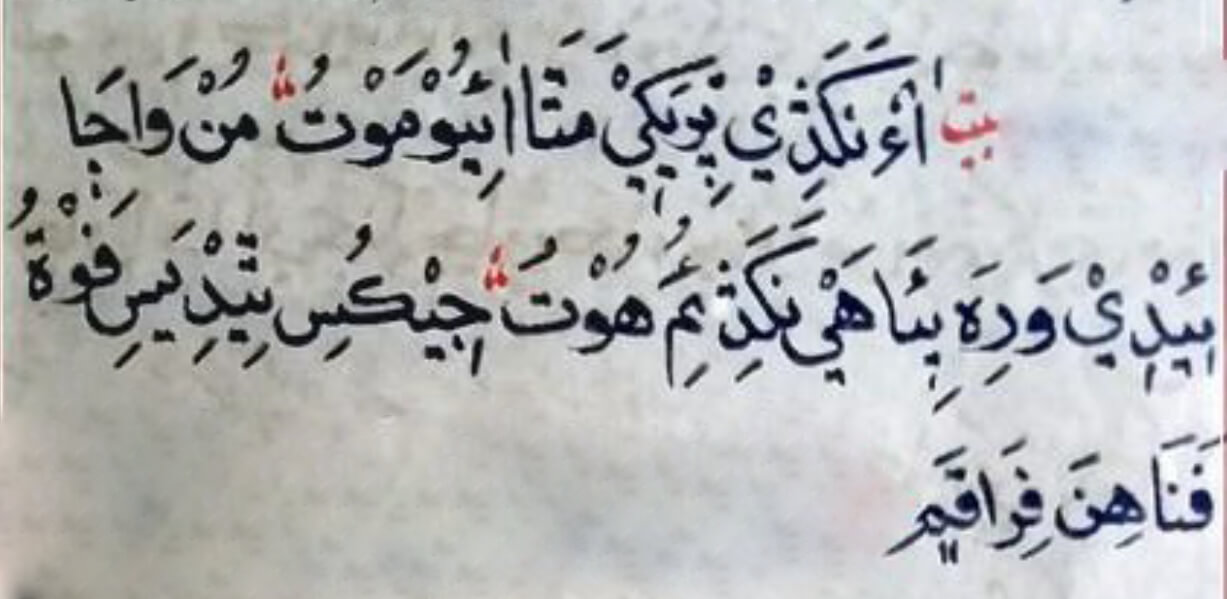 بيت أءُ نَكَذِيْ پِرِيَكِيْ مَتَا اِيَيُوْ مَوْتُ مُنْ وَاجَا
بِيَدِيْ وَرِهَ بِئَا هَيْ نَكَذِ عَمِ هُوْتُ جِيْكُسِ تِيْدِيَسِ فَوْةُ
فَنَا هِنَ فِرَاقَيِم